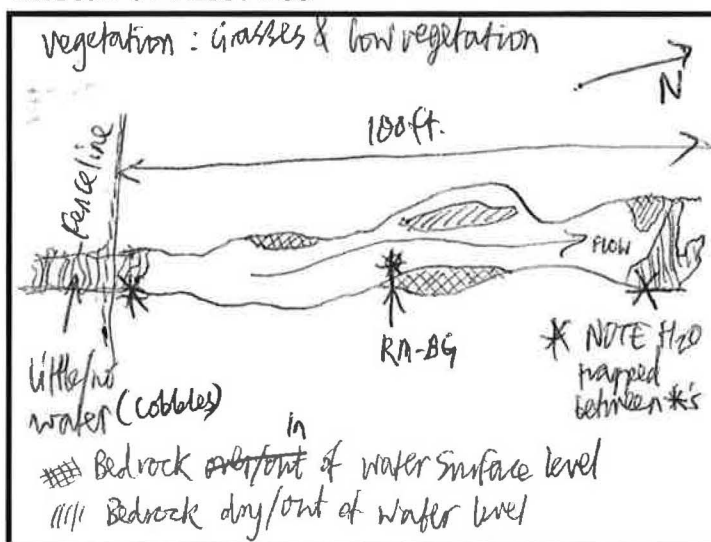 vegetation : Grasses & low vegetation
N
100ft.
Fenceline
FLOW
RM-BG
Little/no
water (cobbles)
* NOTE H2O
trapped
between *'s
in
Bedrock of water surface level
Bedrock dry/out of water level